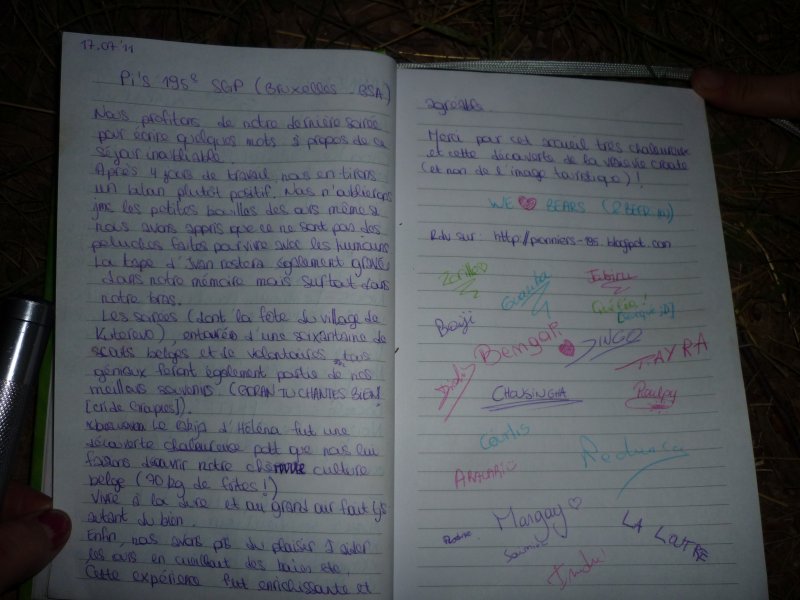 17.07'11
Pi's 195e SGP (Bruxelles - BSA)
Nous profitons de notre dernière soirée
pour écrire quelques mots à propos de ce
séjour inoubliable.
Après 4 jours de travail nous en tirons
un bilan plutôt positif. Nous n'oublierons
les petites bouilles des ours même si
nous avons appris que ce ne sont pas des
peluches faites pour vivre avec les humains
La tape d'Ivan restera également gravée
dans notre mémoire mais surtout dans
notre bras.
Les soirées (dont la fête du village de
Kuterevo), entourées d'une soixantaine de
scouts belges et de volontaires tous
géniaux feront également partie de nos
meilleurs souvenirs. (GORAN TU CHANTES BIEN!
[cri de groupies]).
Le skip d'Héléna fut une
découverte chaleureuse pdt que nous lui
faisions découvrir notre culture
belge (70 kg de frites!)
Vivre à la dure et au grand air faut
autant du bien.
Enfin, nous avons pris du plaisir à aider
les ours en cueillant des baies etc.
Cette expérience fut enrichissante et
agréable.
Merci par cet accueil très chaleureux
et cette découverte de la vraie vie croate
(et non de l'image touristique)!
WE ♥ BEARS (2 BEER )
Rdv sur: http://pionniers-195.blogspot.com
Zorilles
Guanba
Jabiru
Guépéa!
Bonji
Bemgap.
♥
JINGO
TAYRA
Dodo
CHOUSINGHA
Raulpy
Caulis
Redunca
ARACARIE
Margay ♡
LA LOUTRE
Saumine
Indri!